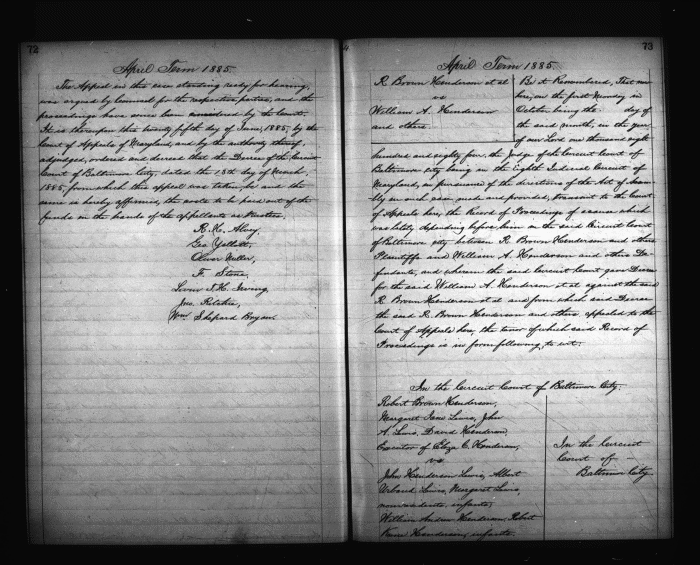 72
April Term 1885.
The Appeal in this case standing ready for hearing,
was argued by Counsel for the respective parties, and the
proceedings have since been considered by the Court.
It is thereupon this twenty fifth day of June, 1885, by the
Court of Appeals of Maryland, and by the authority thereof,
adjudged, ordered and decreed that the Decree of the Circuit
Court of Baltimore City, dated the 18th day of March,
1885, from which this appeal was taken, be and the
same is hereby affirmed, the costs to be paid out of the
funds in the hands of the appellants as Trustees.
R. H. Alvey,
Geo Yellott,
Oliver Miller,
F. Stone,
Levin T. H. Irving,
Jno. Ritchie,
Wm. Shepard Bryan.
4
73
April Term 1885.
R Brown Henderson et al
vs
William A. Henderson
and others
Be it Remembered, That on
here, on the first Monday in
October being the day of
the said month, in the year
of our Lord one thousand eigh
hundred and eighty four, the Judge of the Circuit Court of
Baltimore city being in the Eighth Judicial Circuit of
Maryland, in pursuance of the directions of the Act of Assem
bly in such case made and provided, transmit to the Court
of Appeals here, the Record of Proceedings of a cause which
was lately depending before him in the said Circuit Court
of Baltimore city between R Brown Henderson and others
Plaintiffs and William A. Henderson and others De-
fendants, and wherein the said Circuit Court gave Decree
for the said William A. Henderson et al against the said
R. Brown Henderson et al and from which said Decree
the said R. Brown Henderson and others appealed to the
Court of Appeals here, the tenor of which said Record of
Proceedings is in form following, to wit:
In the Circuit Court of Baltimore City.
Robert Brown Henderson,
Margaret Jane Lewis, John
A. Lewis, David Henderson,
Executor of Eliza C. Henderson,
vs
John Henderson Lewis, Albert
Urband Lewis, Margaret Lewis,
nonresidents, infants,
William Andrew Henderson, Robert
Henderson, infants.
In the Circuit
Court of
Baltimore City